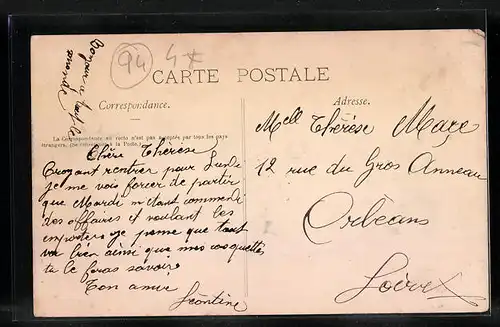 Bonjour à
94
4
CARTE POSTALE
Correspondance.
Adresse.
La Correspondance au recto n'est pas acceptée par tous les pays
étrangers. (Se renseigner à la Poste.)
Chère Thérèse
Croyant rentrer pour Lundi
je me vois forcer de partir
que Mardi m'étant commendé
des affaires et voulant les
emporter je pense que tout
va bien ainsi que mes
tu le feras savoir
Ton amie
Léontine
Mell Thérèse Mace
12 rue du Gros Anneau
Orléans
Loiret